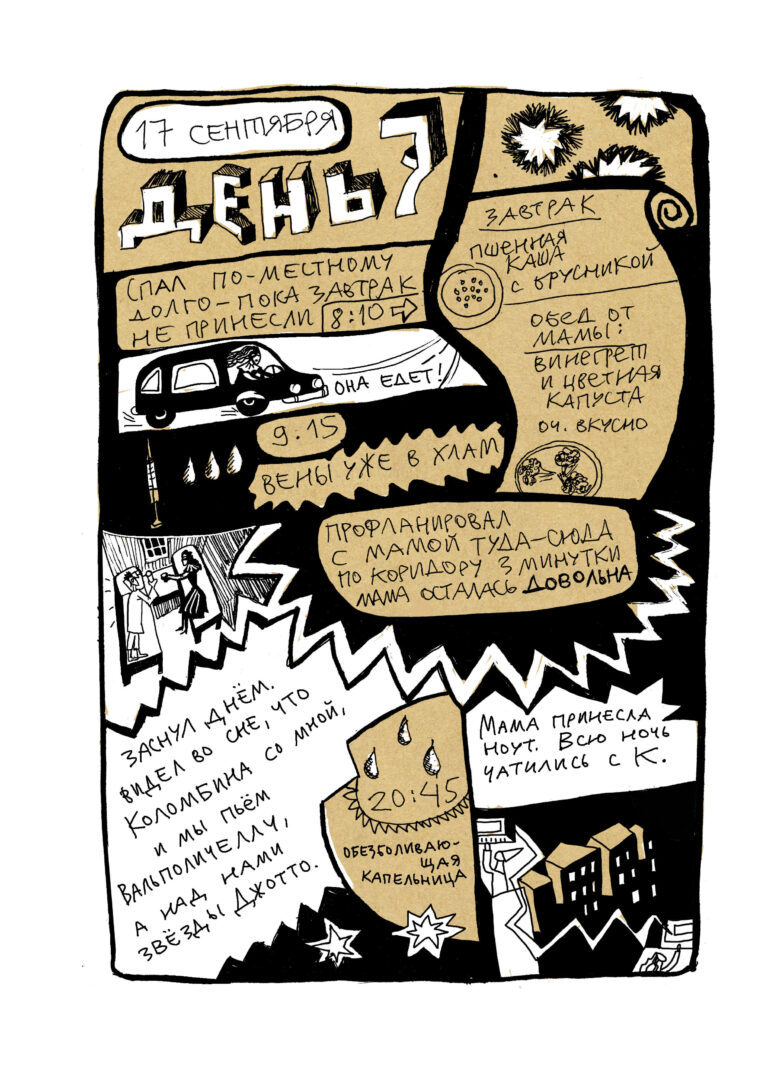 17 СЕНТЯБРЯ
ДЕНЬ 7
СПАЛ ПО-МЕСТНОМУ
ДОЛГО-ПОКА ЗАВТРАК
НЕ ПРИНЕСЛИ 8:10
ОНА ЕДЕТ!
9.15
ВЕНЫ УЖЕ В ХЛАМ
ЗАВТРАК
ПШЕННАЯ
КАША
С БРУСНИКОЙ
ОБЕД ОТ
МАМЫ:
ВИНЕГРЕТ
И ЦВЕТНАЯ
КАПУСТА
ОЧ. ВКУСНО
ПРОФЛАНИРОВАЛ
С МАМОЙ ТУДА-СЮДА
ПО КОРИДОРУ 3 МИНУТКИ
МАМА ОСТАЛАСЬ ДОВОЛЬНА
ЗАСНУЛ ДНЁМ.
ВИДЕЛ ВО СНЕ, ЧТО
КОЛОМБИНА СО МНОЙ,
И МЫ ПЬЁМ
ВАЛЬПОЛИЧЕЛЛУ,
А НАД НАМИ
ЗВЁЗДЫ ДЖОТТО.
20:45
ОБЕЗБОЛИВАЮ-
ЩАЯ
КАПЕЛЬНИЦА
МАМА ПРИНЕСЛА
НОУТ. ВСЮ НОЧЬ
ЧАТИЛИСЬ С К.